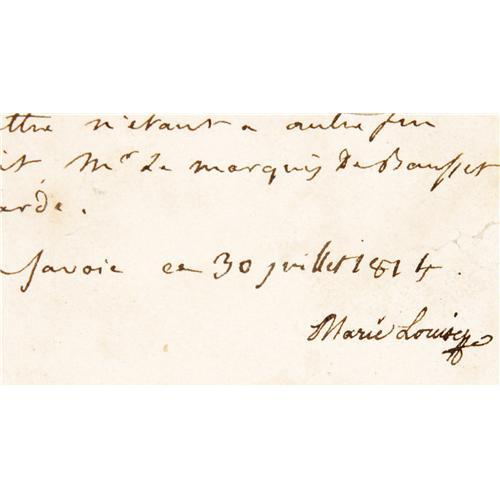 ettre n'étant a autre fin
it, Mr Le marquis De Bausset
arde.
Savoie ce 30 juillet 1814.
Marie Louise